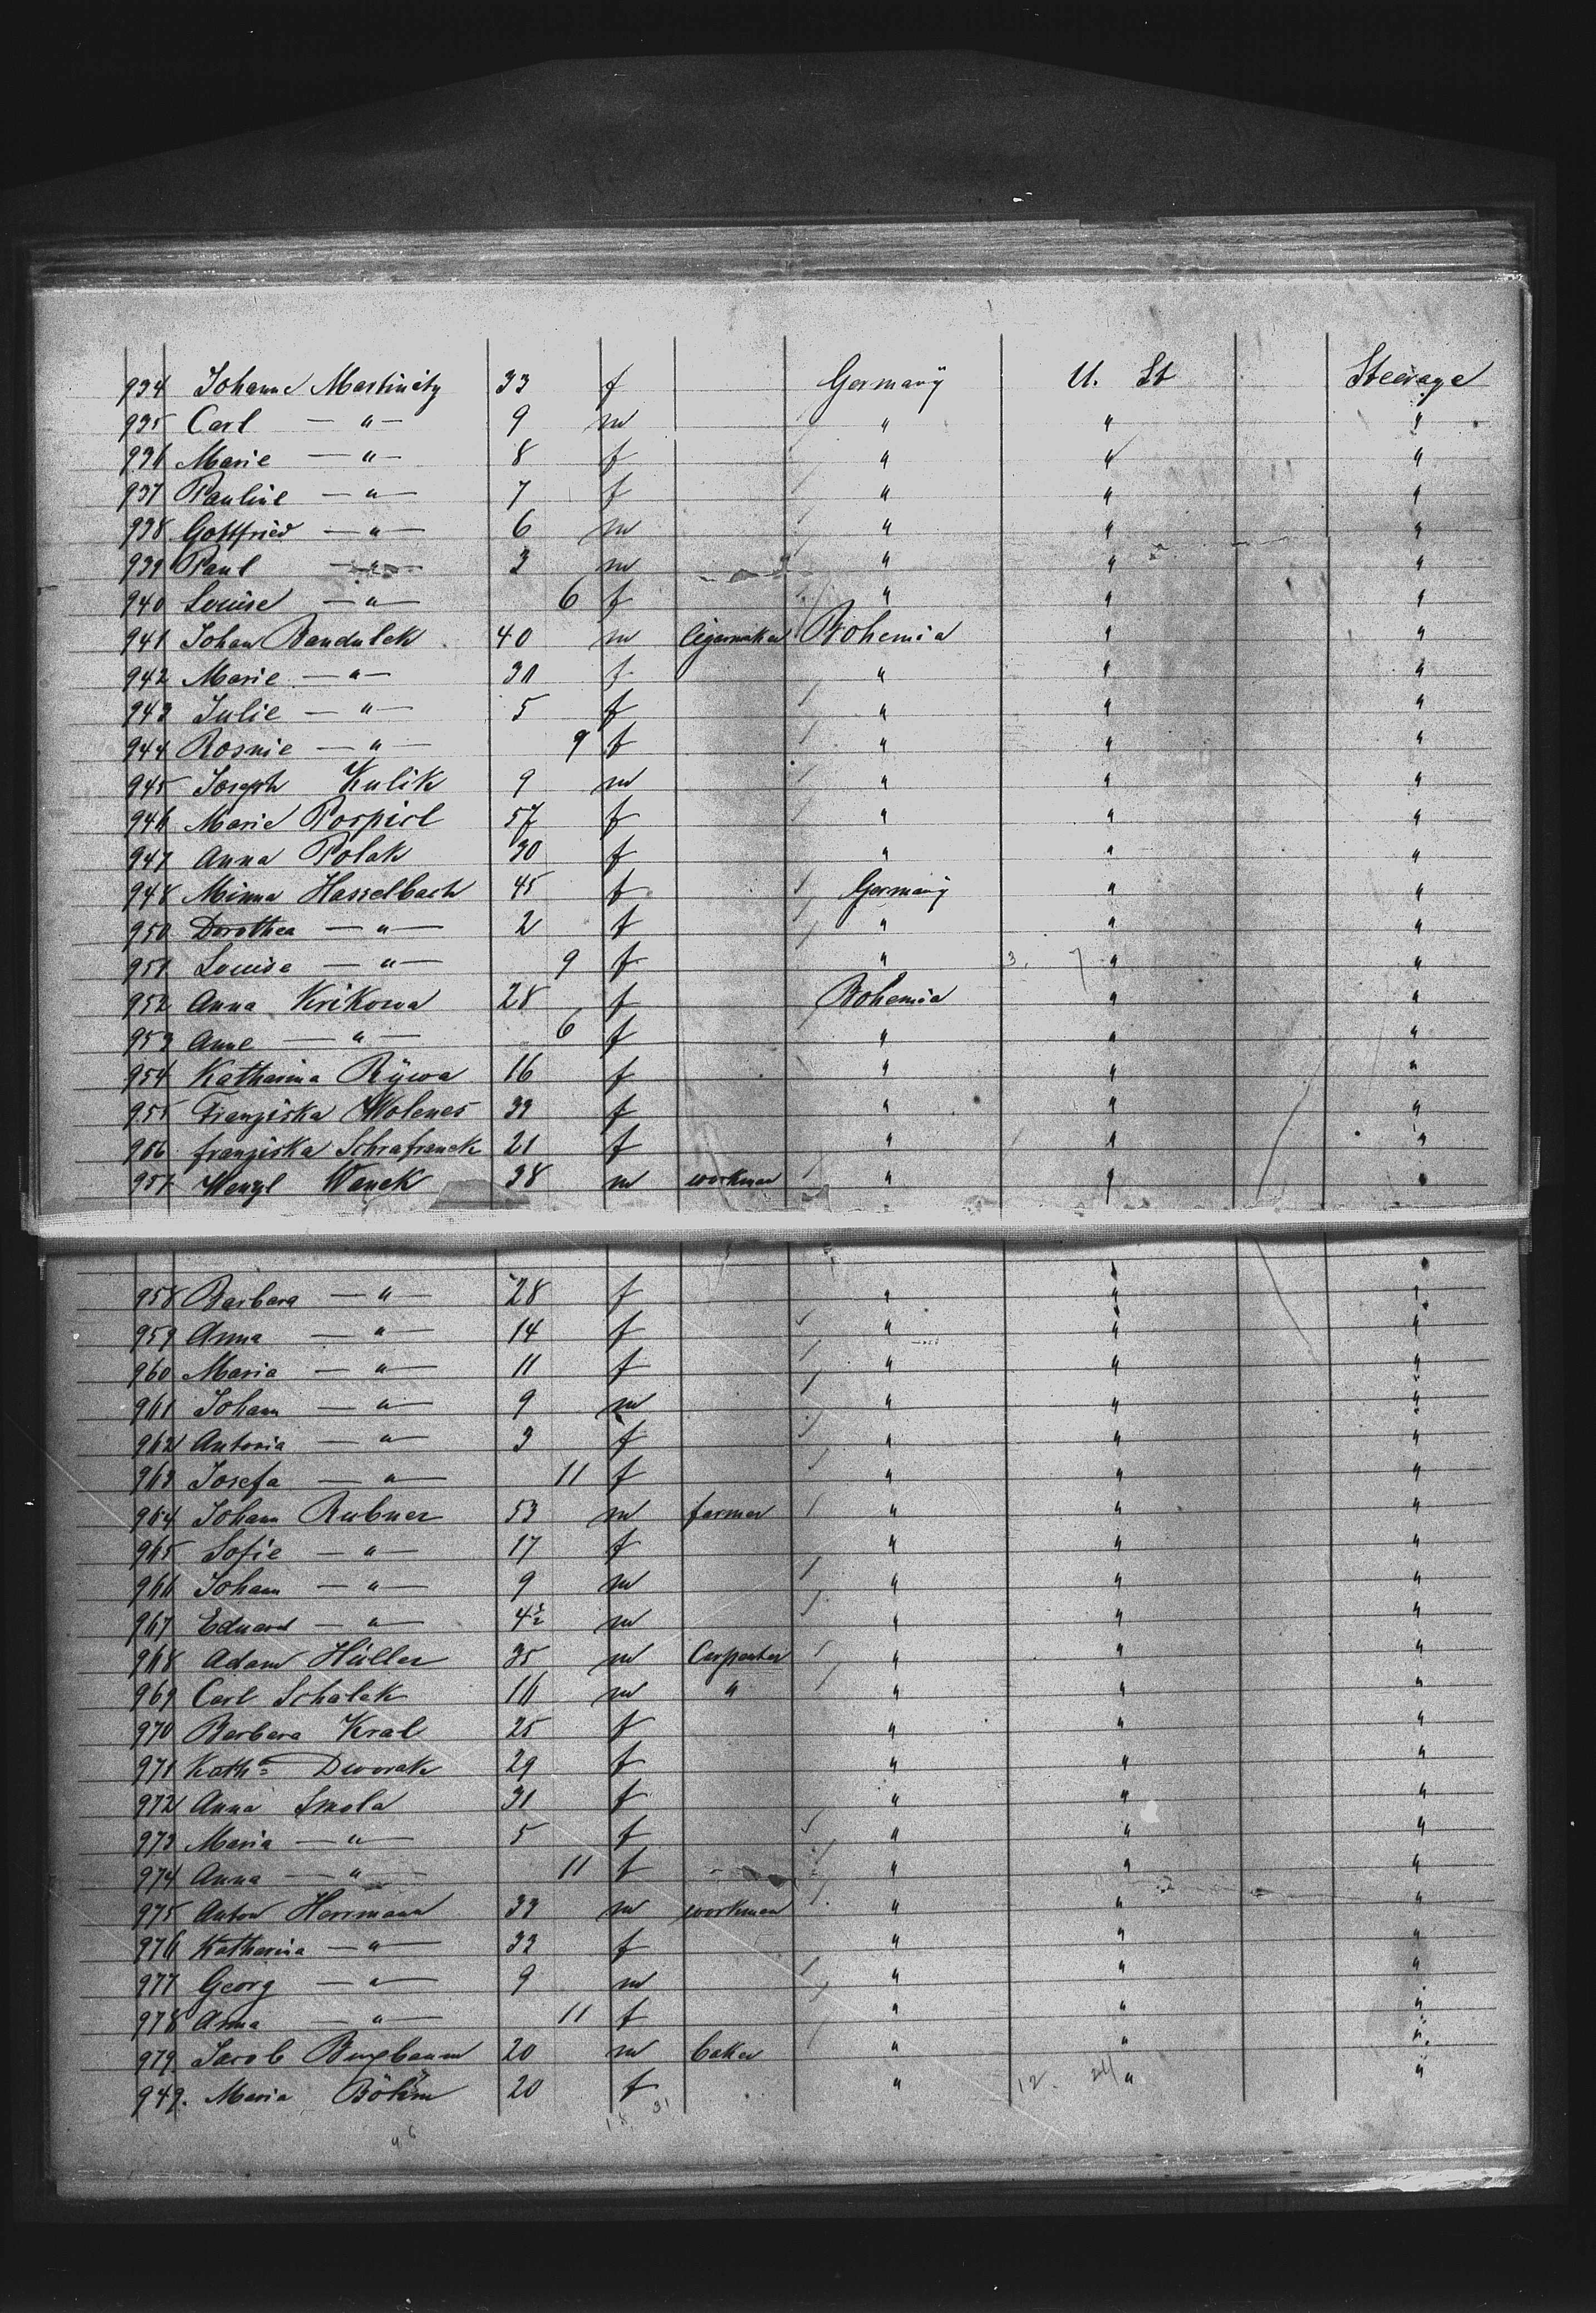 934 Johanne Martinitz 33 f Germany U. St Steerage
935 Carl — " — 9 m " " "
936 Marie — " — 8 f " " "
937 Pauline — " — 7 f " " "
938 Gottfried — " — 6 m " " "
939 Paul — " — 3 m " " "
940 Louise — " — 6 f " " "
941 Johan Bandulek 40 m Cigarmaker Bohemia " "
942 Marie — " — 30 f " " "
943 Julie — " — 5 f " " "
944 Rosnie — " — 9 f " " "
945 Joseph Kulik 9 m " " "
946 Marie Pospisl 57 f " " "
947 Anna Polak 30 f " " "
948 Minna Hasselbach 45 f Germany " "
950 Dorothea — " — 2 f " " "
951 Louise — " — 9 f " 3. 7 " "
952 Anna Krikowa 28 f Bohemia " "
953 Anne — " — 6 f " " "
954 Katharina Rÿwa 16 f " " "
955 Franziska Wolenes 39 f " " "
956 franziska Schrafranek 21 f " " "
957 Wenzl Wanek 38 m workman " " "
958 Barbara — " — 28 f " " "
959 Anna — " — 14 f " " "
960 Maria — " — 11 f " " "
961 Johann — " — 9 m " " "
962 Antonia — " — 3 f " " "
963 Josefa — " — 11 f " " "
964 Johann Rubner 53 m farmer " " "
965 Sofie — " — 17 f " " "
966 Johann — " — 9 m " " "
967 Eduard — " — 4½ m " " "
968 Adam Hüller 35 m Carpenter " " "
969 Carl Schalek 16 m " " " "
970 Barbara Kral 25 f " " "
971 Kath= Dworak 29 f " " "
972 Anna Smola 31 f " " "
973 Maria — " — 5 f " " "
974 Anna — " — 11 f " " "
975 Anton Herrmann 33 m workman " " "
976 Katharina — " — 32 f " " "
977 Georg — " — 9 m " " "
978 Anna — " — 11 f " " "
979. Jacob Bugbaum 20 m baker " " "
949. Maria Böhm 20 f " 12. 24 " "
18. 31
46